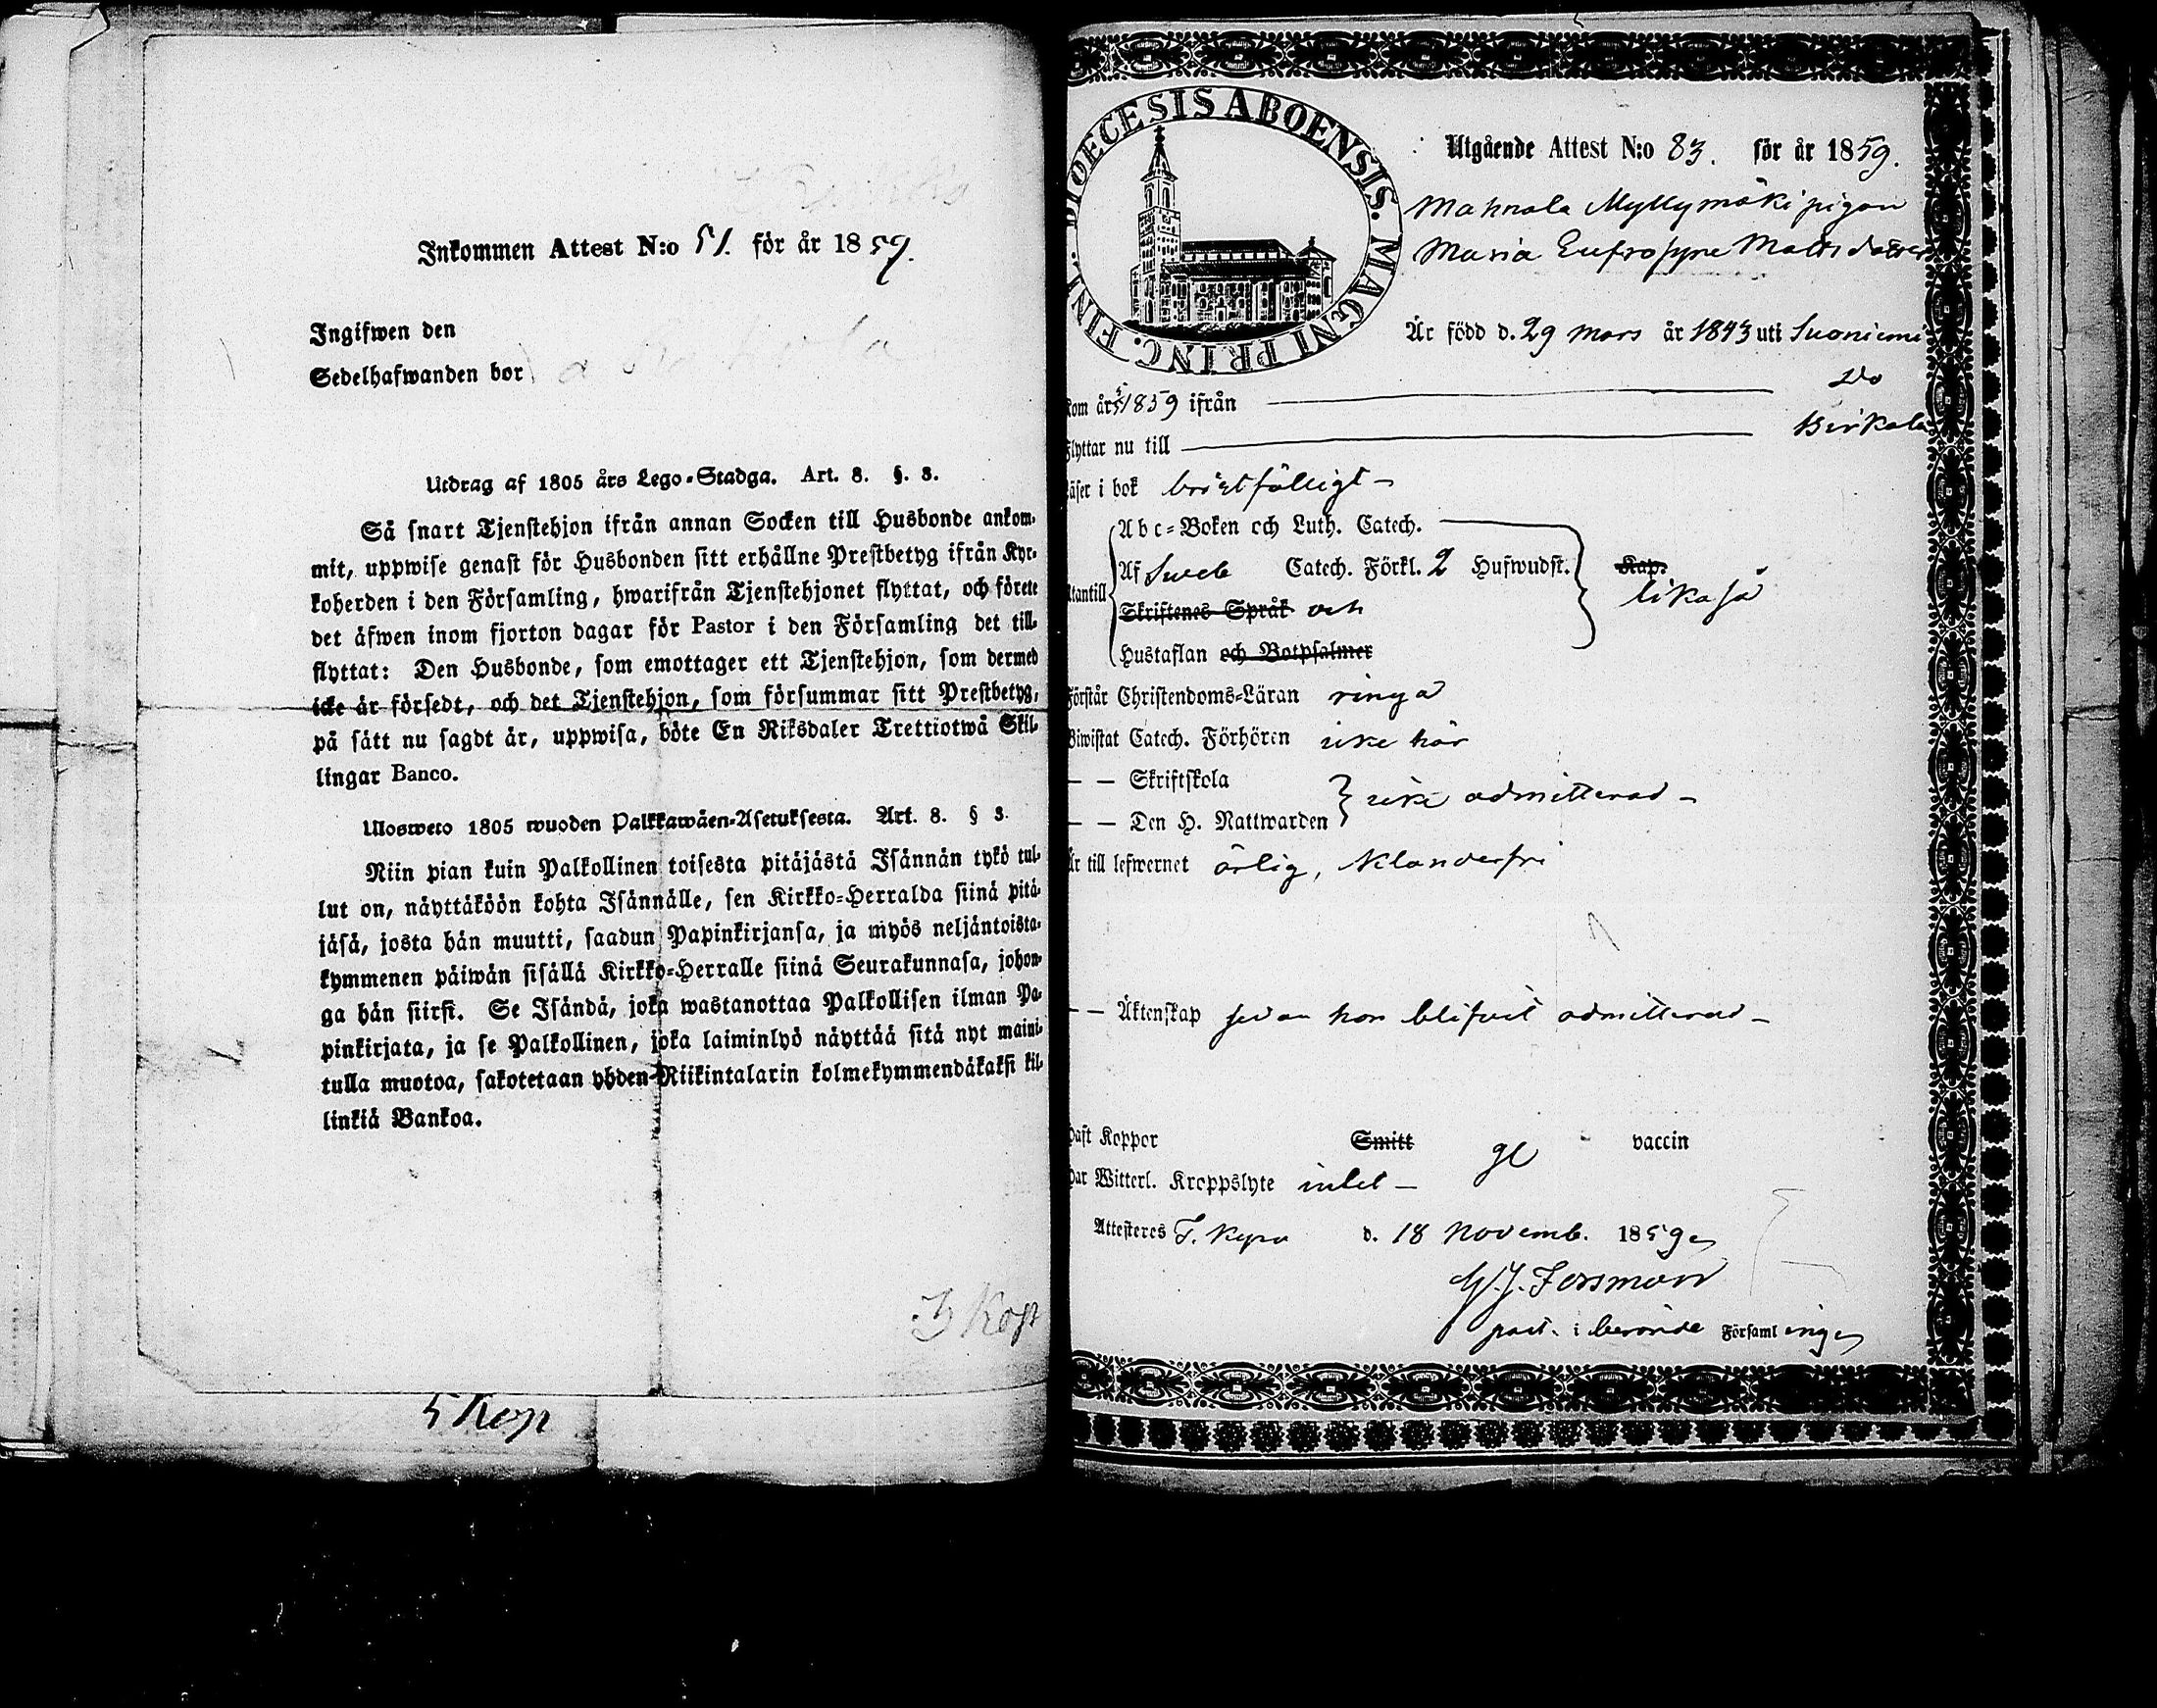 Inkommen Attest N:o 51. för år 1859.
Ingifwen den
Sedelhafwanden bor
Utdrag af 1805 års Lego-Stadga. Art. 8. §. 3.
Så snart Tjenstehjon ifrån annan Socken till Husbonde ankom-
mit, uppwise genast för Husbonden sitt erhållne Prestbetyg ifrån Kyr-
koherden i den Församling, hwarifrån Tjenstehjonet flyttat, och förete
det äfwen inom fjorton dagar för Pastor i den Församling det till-
flyttat: Den Husbonde, som emottager ett Tjenstehjon, som dermed
icke är försedt, och det Tjenstehjon, som försummar sitt Prestbetyg,
på sätt nu sagdt är, uppwisa, böte En Riksdaler Trettiotwå Skil-
lingar Banco.
Ulosweto 1805 wuoden Palkkawäen-Asetuksesta. Art. 8. § 3.
Niin pian kuin Palkollinen toisesta pitäjästä Isännän tykö tul-
lut on, näyttäköön kohta Isännälle, sen Kirkko-Herralda siinä pitä-
jäsä, josta hän muutti, saadun Papinkirjansa, ja myös neljäntoista-
kymmenen päiwän sisällä Kirkko-Herralle siinä Seurakunnasa, johon-
ga hän siirsi. Se Isändä, joka wastanottaa Palkollisen ilman Pa-
pinkirjata, ja se Palkollinen, joka laiminlyö näyttää sitä nyt maini-
tulla muotoa, sakotetaan yhden Riikintalarin kolmekymmendäkaksi kil-
linkiä Bankoa.
3 Kop
5 Kop
DIOECESIS ABOENSIS. MAGNI PRINC. FINL.
Utgående Attest N:o 83. för år 1859.
Mahnala Myllymäki pigan
Maria Eufrosyne Matts dotter
Är född d. 29 Mars år 1843 uti Suoniemi
kom år 1859 ifrån Do
Flyttar nu till Birkala
Läser i bok bristfälligt
Abc-Boken och Luth. Catech.
Af Sveb Catech. Förkl. 2 Hufwudst. Kap.
Utantill Skriftenes Språk och likaså
Hustaflan och Botpsalmer
Förstår Christendoms-Läran ringa
Biwistat Catech. Förhören icke här
— — Skriftskola
— — Den H. Nattwarden icke admitterad
Är till lefwernet ärlig, klanderfri
— — Äktenskap sedan hon blifvit admitterad
Haft Koppor Smitt vaccin
Har Witterl. Kroppslyte intet
Attesteres T. Kyro d. 18 Novemb. 1859
G. J. Forsman
past. i berörde Församlingen